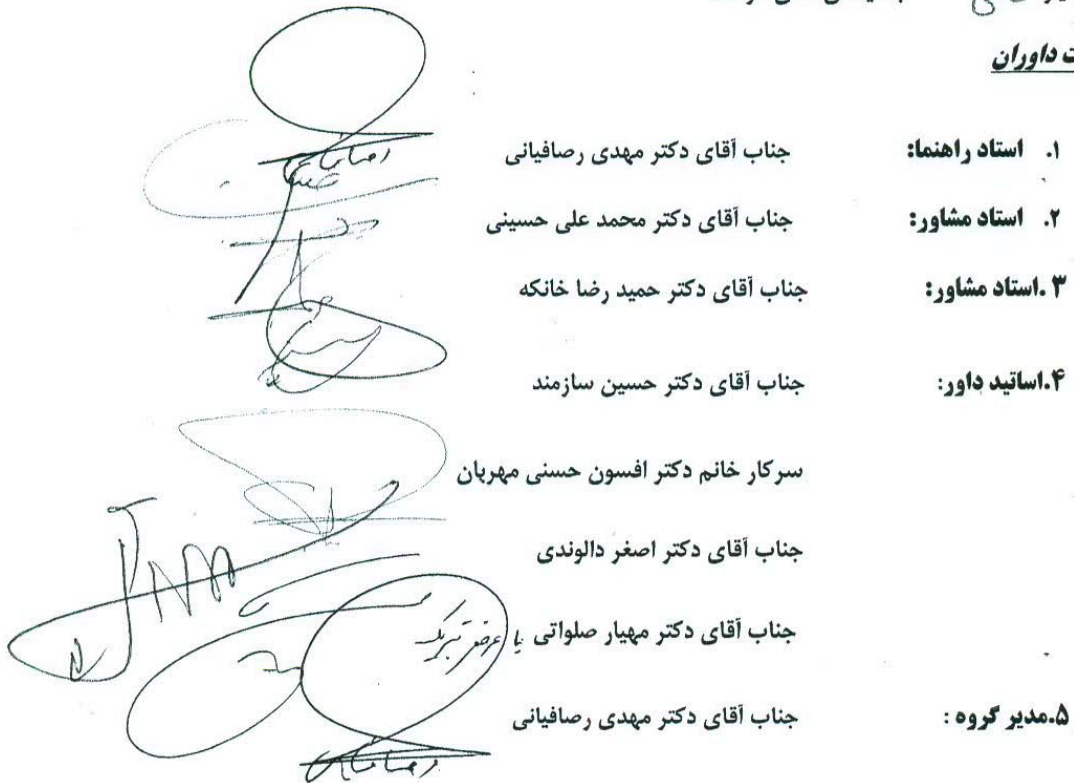 ت داوران
۱. استاد راهنما: جناب آقای دکتر مهدی رصافیانی
۲. استاد مشاور: جناب آقای دکتر محمد علی حسینی
۳.استاد مشاور: جناب آقای دکتر حمید رضا خانکه
۴.اساتید داور: جناب آقای دکتر حسین سازمند
سرکار خانم دکتر افسون حسنی مهربان
جناب آقای دکتر اصغر دالوندی
جناب آقای دکتر مهیار صلواتی با عرض تبریک
۵.مدیر گروه : جناب آقای دکتر مهدی رصافیانی